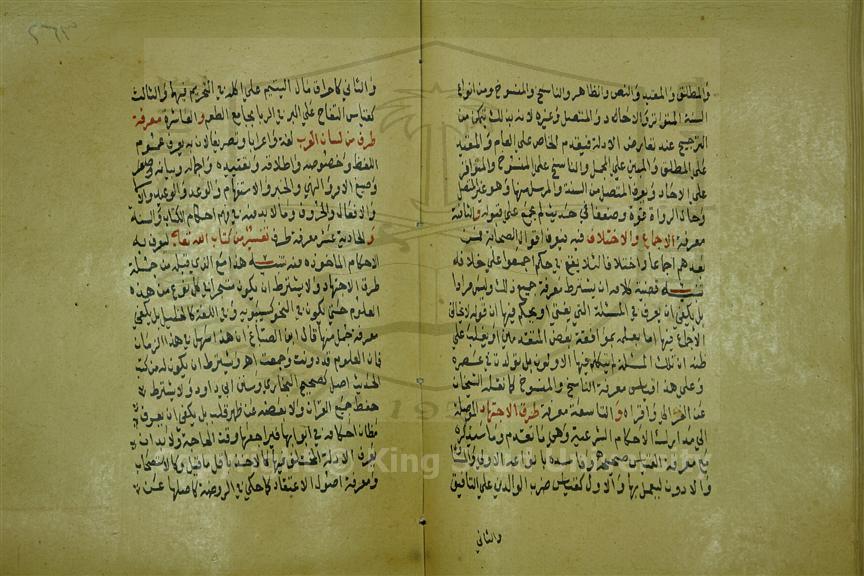 والمطلق والمقيد والنص والظاهر والناسخ والمنسوخ ومن انواع
السنة المتواتر والاحاد والمتصل وغيره لانه بذلك يتمكن من
الترجيح عند تعارض الادلة فيقدم الخاص على العام والمقيد
على المطلق والمبين على المجمل والناسخ على المنسوخ والمتواتر
على الاحاد ويعرف المتصل من السنة والمرسل منها وهو غير المتصل
وحال الرواة قوة وضعفا في حديث لم يجمع على قبوله والثامنة
معرفة الاجماع والاختلاف فيه فيعرف اقوال الصحابة فمن
بعدهم اجماعا واختلافا لئلا يقع في حكم اجمعوا على خلافه
تنبيه قضية كلامه انه يشترط معرفة جميع ذلك وليس مرادا
بل يكفي ان يعرف في المسئلة التي يفتي او يحكم فيها ان قوله لا يخالف
الاجماع فيها اما بعلمه بموافقة بعض المتقدمين او يغلب على
ظنه ان تلك المسئلة لم يتكلم فيها الاولون بل تولدت في عصره
وعلى هذا قياس معرفة الناسخ والمنسوخ كما نقله الشيخان
عن الغزالي واقراه والتاسعة معرفة طرق الاجتهاد الموصلة
الى مدارك الاحكام الشرعية وهي ما تقدم وما سيذكره
مع معرفة القياس صحيحه وفاسده بانواعه الاولى والمساوي
والادون ليعمل بها والاول كقياس ضرب الوالدين على التأفيف
والثاني
والثاني كاحراق مال اليتيم على اكله في التحريم فيها والثالث
كقياس التفاح على البر في الربا بجامع الطعم والعاشرة معرفة
طرف من لسان العرب لغة واعرابا وتصريفا لان به يعرف عموم
اللفظ وخصوصه واطلاقه وتقييده واجماله وبيانه
وصيغ الامر والنهي والخبر والاستفهام والوعد والوعيد
والافعال والحروف وما لا بد منه في فهم احكام الكتاب والسنة
والحادية عشر معرفة طرف تفسير من كتاب الله تعالى ليعرف به
الاحكام الماخوذة منه تنبيه هذا مع الذي قبله من جملة
طرق الاجتهاد ولا يشترط ان يكون متبحرا في كل نوع من هذه
العلوم حتى يكون في النحو كسيبويه وفي اللغة كالخليل بل يكفي
معرفة جمل منها قال ابن الصباغ ان هذا سهل في هذا الزمان
فان العلوم قد دونت وجمعت اه ويشترط ان يكون له من كتب
الحديث اصل كصحيح البخاري وسنن ابي داود ولا يشترط
حفظ جميع القران ولا بعضه عن ظهر قلب بل يكفي ان يعرف
مظان احكامه في ابوابها فيراجعها وقت الحاجة ولا بد ان
يعرف الادلة المختلف فيها كالاخذ باقل ما قيل وكالاستصحاب
ومعرفة اصول الاعتقاد كما حكي في الروضة كاصلها عن